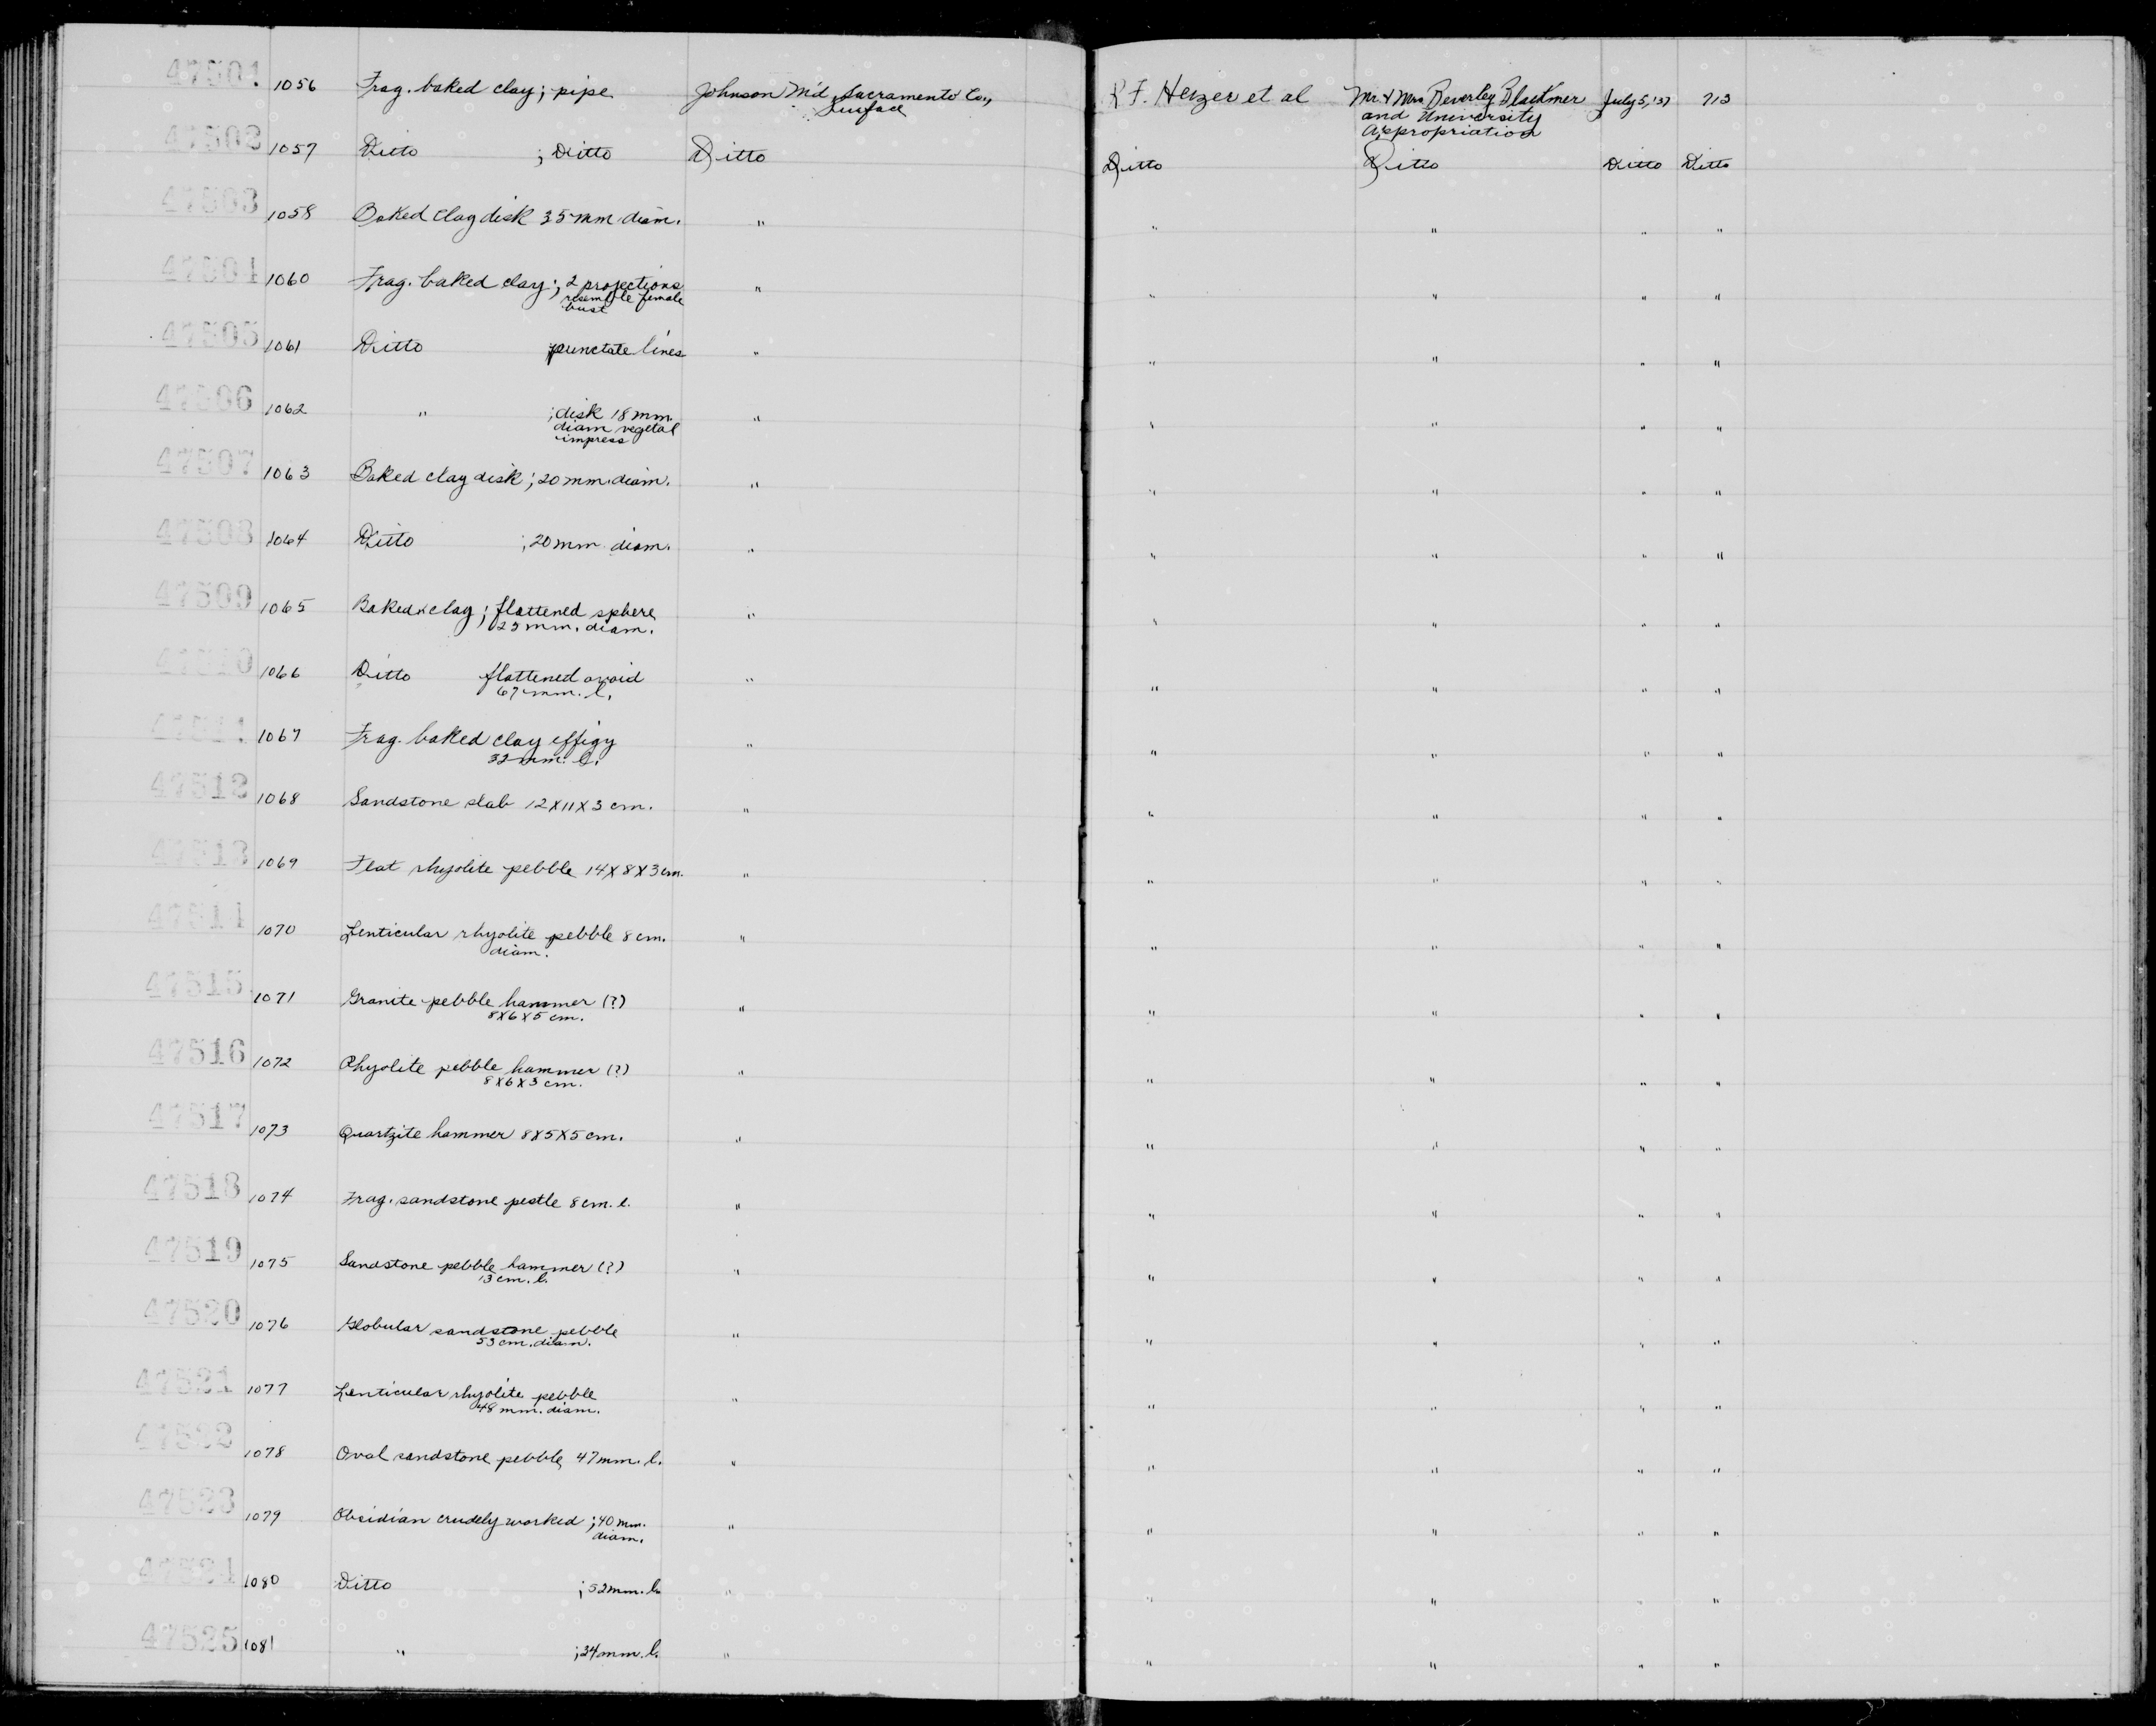 47501 1056 Frag. baked clay; pipe Johnson M'd, Sacramento Co., R F. Heizer et al Mr. & Mrs Beverley Blackmer July 5, '37 713
Surface and University
Appropriation
47502 1057 Ditto ; Ditto Ditto Ditto Ditto Ditto Ditto
47503 1058 Baked clay disk 35 mm diam. " " " " "
47504 1060 Frag. baked clay; 2 projections " " " " "
resemble female
bust
47505 1061 Ditto punctate lines " " " " "
47506 1062 " ; disk 18 mm. " " " " "
diam vegetal
impress
47507 1063 Baked clay disk; 20 mm. diam. " " " " "
47508 1064 Ditto ; 20 mm diam. " " " " "
47509 1065 Baked clay; flattened sphere " " " " "
25 mm. diam.
47510 1066 Ditto flattened ovoid " " " " "
67 mm. l.
47511 1067 Frag. baked clay effigy " " " " "
32 mm. l.
47512 1068 Sandstone slab 12 X 11 X 3 cm. " " " " "
47513 1069 Flat rhyolite pebble 14 X 8 X 3 cm. " " " " "
47514 1070 Lenticular rhyolite pebble 8 cm. " " " " "
diam.
47515 1071 Granite pebble hammer (?) " " " " "
8 X 6 X 5 cm.
47516 1072 Rhyolite pebble hammer (?) " " " " "
8 X 6 X 3 cm.
47517 1073 Quartzite hammer 8 X 5 X 5 cm. " " " " "
47518 1074 Frag. sandstone pestle 8 cm. l. " " " " "
47519 1075 Sandstone pebble hammer (?) " " " " "
13 cm. l.
47520 1076 Globular sandstone pebble " " " " "
53 cm. diam.
47521 1077 Lenticular rhyolite pebble " " " " "
48 mm. diam.
47522 1078 Oval sandstone pebble 47 mm. l. " " " " "
47523 1079 Obsidian crudely worked ; 40 mm. " " " " "
diam.
47524 1080 Ditto ; 52 mm. l. " " " " "
47525 1081 " ; 34 mm. l. " " " " "